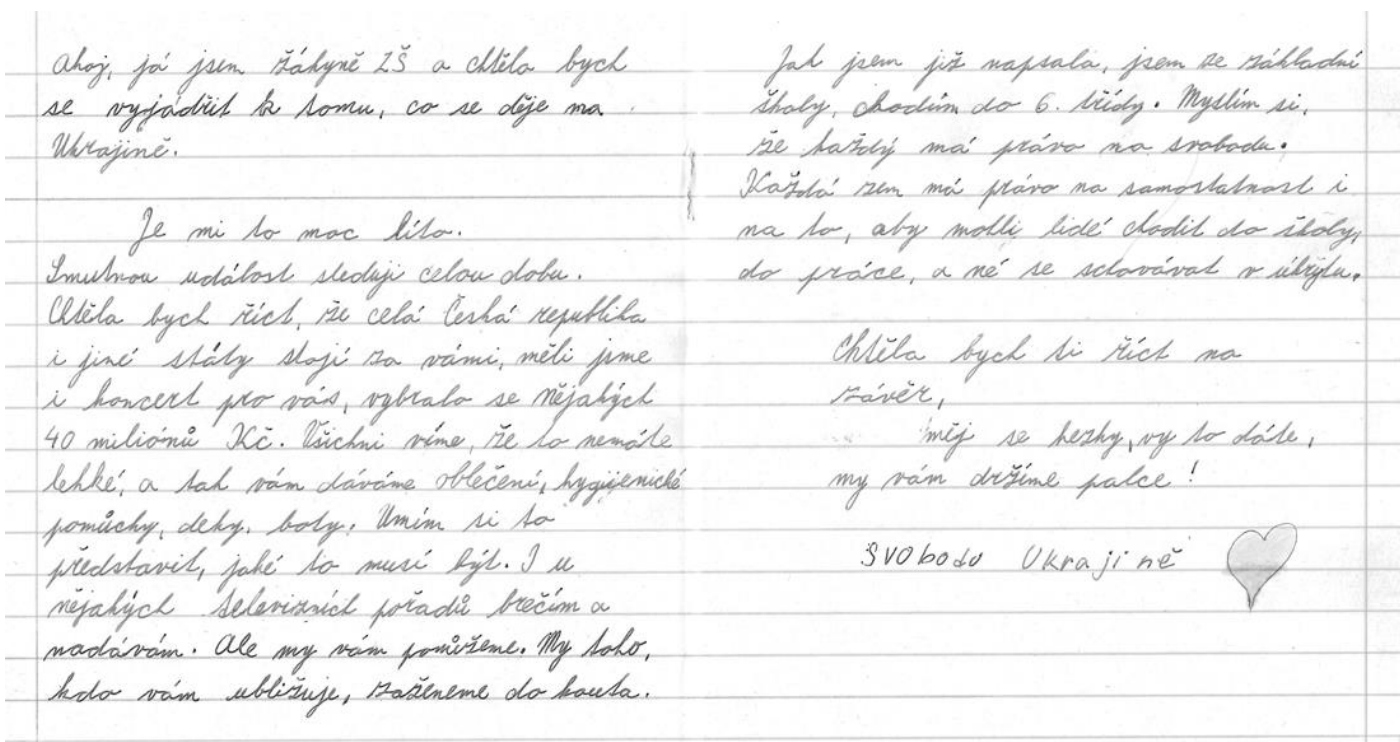 Ahoj, já jsem žákyně ZŠ a chtěla bych
se vyjádřit k tomu, co se děje na
Ukrajině.
Je mi to moc líto.
Smutnou událost sleduji celou dobu.
Chtěla bych říct, že celá Česká republika
i jiné státy stojí za vámi, měli jsme
i koncert pro vás, vybralo se nějakých
40 miliónů Kč. Všichni víme, že to nemáte
lehké, a tak vám dáváme oblečení, hygijenické
pomůcky, deky, boty. Umím si to
představit, jaké to musí být. I u
nějakých televizních pořadů brečím a
nadávám. Ale my vám pomůžeme. My toho,
kdo vám ubližuje, zaženeme do kouta.
Jak jsem již napsala, jsem ze záhladní
školy, chodím do 6. třídy. Myslím si,
že každý má právo na svobodu.
Každá zem má právo na samostatnost i
na to, aby mohli lidé chodit do školy,
do práce, a né se schovávat v úkrytu.
Chtěla bych ti říct na
závěr,
měj se hezky, vy to dáte,
my vám držíme palce!
Svobodu Ukrajině